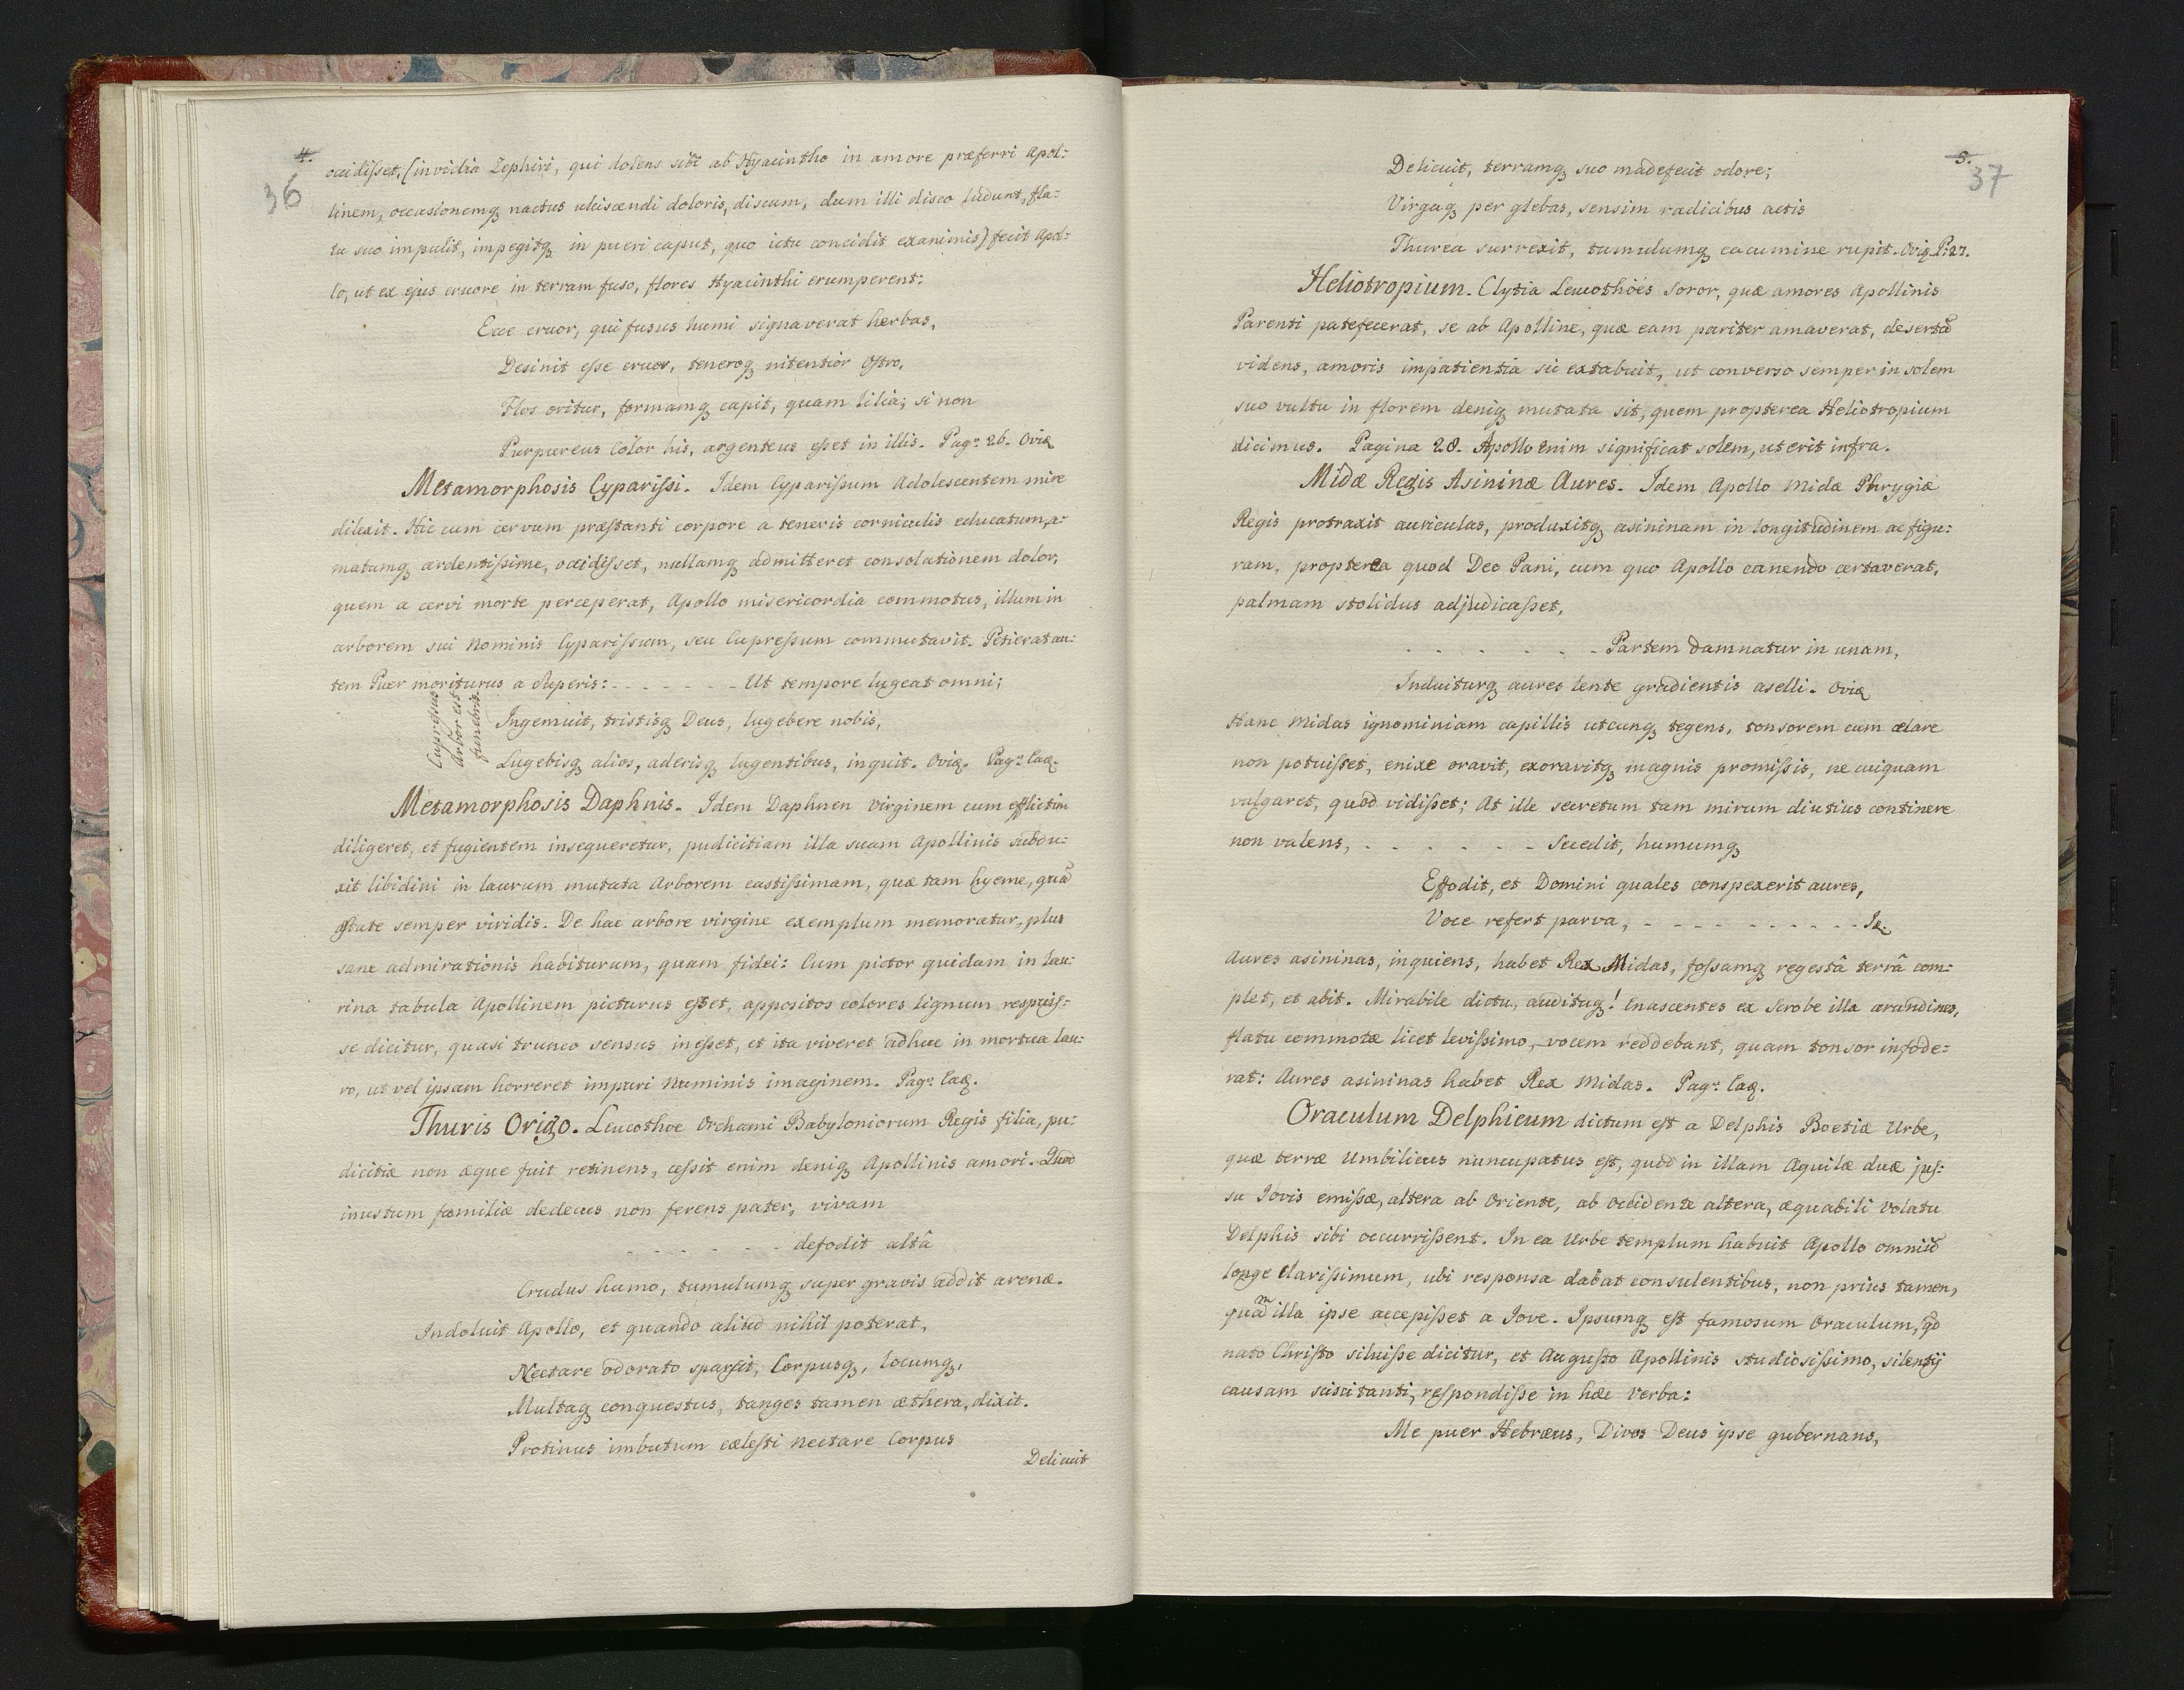 4.
36
occidisset, (invidia Zephiri, qui dolens sibi ab Hyacintho in amore præferri Apol:
linem, occasionemq nactus ulciscendi doloris, discum, dum illi disco ludunt, fla:
tu suo impulit, impegitq in pueri caput, quo ictu concidit exanimis) fecit Apol:
lo, ut ex ejus cruore in terram fuso, flores Hyacinthi erumperent:
Ecce cruor, qui fusus humi signaverat herbas,
Desinit esse cruor, teneroq nitentior Ostro,
Flos oritur, formamq capit, quam lilia; si non
Purpureus Color his, argenteus esset in illis. Pag: 26. Ovid
Metamorphosis Cyparissi. Idem Cyparissum Adolescentem mire
dilexit. Hic cum cervum præstanti corpore a teneris corniculis educatum, a:
matumq ardentissime, occidisset, nullamq admitteret consolationem dolor,
quem a cervi morte perceperat, Apollo misericordia commotus, illum in
arborem sui Nominis Cyparissum, seu Cupressum commutavit. Petierat au:
tem Puer moriturus a Superis: - - - - - - - Ut tempore lugeat omni;
Cupressus
Arbor est
funebris.
Ingemuit, tristisq Deus, lugebere nobis,
Lugebisq alios, aderisq lugentibus, inquit. Ovid. Pag: Ead.
Metamorphosis Daphnis. Idem Daphnen Virginem cum efflictim
diligeret, et fugientem insequeretur, pudicitiam illa suam Apollinis subdu:
xit libidini in laurum mutata Arborem castissimam, quæ tam hyeme, quā
æstate semper viridis. De hac arbore virgine exemplum memoratur, plus
sane admirationis habiturum, quam fidei: Cum pictor quidam in lau:
rina tabula Apollinem picturus esset, appositos colores lignum respuis:
se dicitur, quasi trunco sensus inesset, et ita viveret adhuc in mortua lau:
ro, ut vel ipsam horreret impuri Numinis imaginem. Pag: Ead.
Thuris Origo. Leucothoe Orchami Babyloniorum Regis filia, pu:
dicitiæ non æque fuit retinens, cessit enim deniq Apollinis amori. Quod
inustum familiæ dedecus non ferens pater, vivam
- - - - - - - defodit altâ
Crudus humo, tumulumq super gravis addit arenæ.
Indoluit Apollo, et quando aliud nihil poterat,
Nectare odorato sparsit, Corpusq, locumq,
Multaq conquestus, tanges tamen æthera, dixit.
Protinus imbutum cælesti Nectare Corpus
Delicuit
5.
37
Delicuit, terramq suo madefecit odore;
Virgaq per glebas, sensim radicibus actis
Thurea surrexit, tumulumq cacumine rupit. Ovid. P: 27.
Heliotropium. Clytia Leucothoës Soror, quæ amores Apollinis
Parenti patefecerat, se ab Apolline, quæ eam pariter amaverat, desertā
videns, amoris impatientia sic extabuit, ut converso semper in solem
suo vultu in florem deniq mutata sit, quem propterea Heliotropium
dicimus. Pagina 28. Apollo enim significat solem, ut erit infra.
Midæ Regis Asininæ Aures. Idem Apollo Midæ Phrygiæ
Regis protraxit auriculas, produxitq asininam in longitudinem ac figu:
ram, propterea quod Deo Pani, cum quo Apollo canendo certaverat,
palmam stolidus adjudicasset,
- - - - - - - Partem damnatur in unam,
Induiturq aures lente gradientis aselli. Ovid
Hanc Midas ignominiam capillis utcunq tegens, tonsorem cum celare
non potuisset, enixe oravit, exoravitq magnis promissis, ne cuiquam
vulgaret, quod vidisset; At ille secretum tam mirum diutius continere
non valens, - - - - - - - Secedit, humumq
Effodit, et Domini quales conspexerit aures,
Voce refert parva, - - - - - - - - - - Id.
Aures asininas, inquiens, habet Rex Midas, fossamq regestâ terrâ com:
plet, et abit. Mirabile dictu, audituq! Enascentes ex Scrobe illa arundines,
flatu commotæ licet levissimo, vocem reddebant, quam tonsor infode:
rat: Aures asininas habet Rex Midas. Pag: Ead.
Oraculum Delphicum dictum est a Delphis Boetiæ Urbe,
quæ terræ Umbilicus nuncupatus est, quod in illam Aquilæ duæ jus:
su Jovis emissæ, altera ab Oriente, ab Occidente altera, æquabili Volatu
Delphis sibi occurrissent. In ea Urbe templum habuit Apollo omniū
longe Clarissimum, ubi responsa dabat consulentibus, non prius tamen,
quam illa ipse accepisset a Jove. Ipsumq est famosum Oraculum, qd
nato Christo siluisse dicitur, et Augusto Apollinis studiosissimo, silentij
causam sciscitanti, respondisse in hæc Verba:
Me puer Hebræus, Divos Deus ipse gubernans,